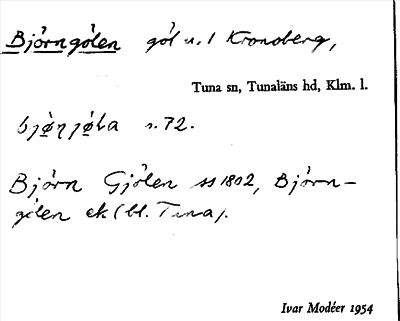 Björngölen göl n. l Kronoberg,
Tuna sn, Tunaläns hd, Klm. l.
s. 72.
Björn Gjölen ss 1802, Björn-
gölen ek (bl. Tuna).
Ivar Modéer 1954